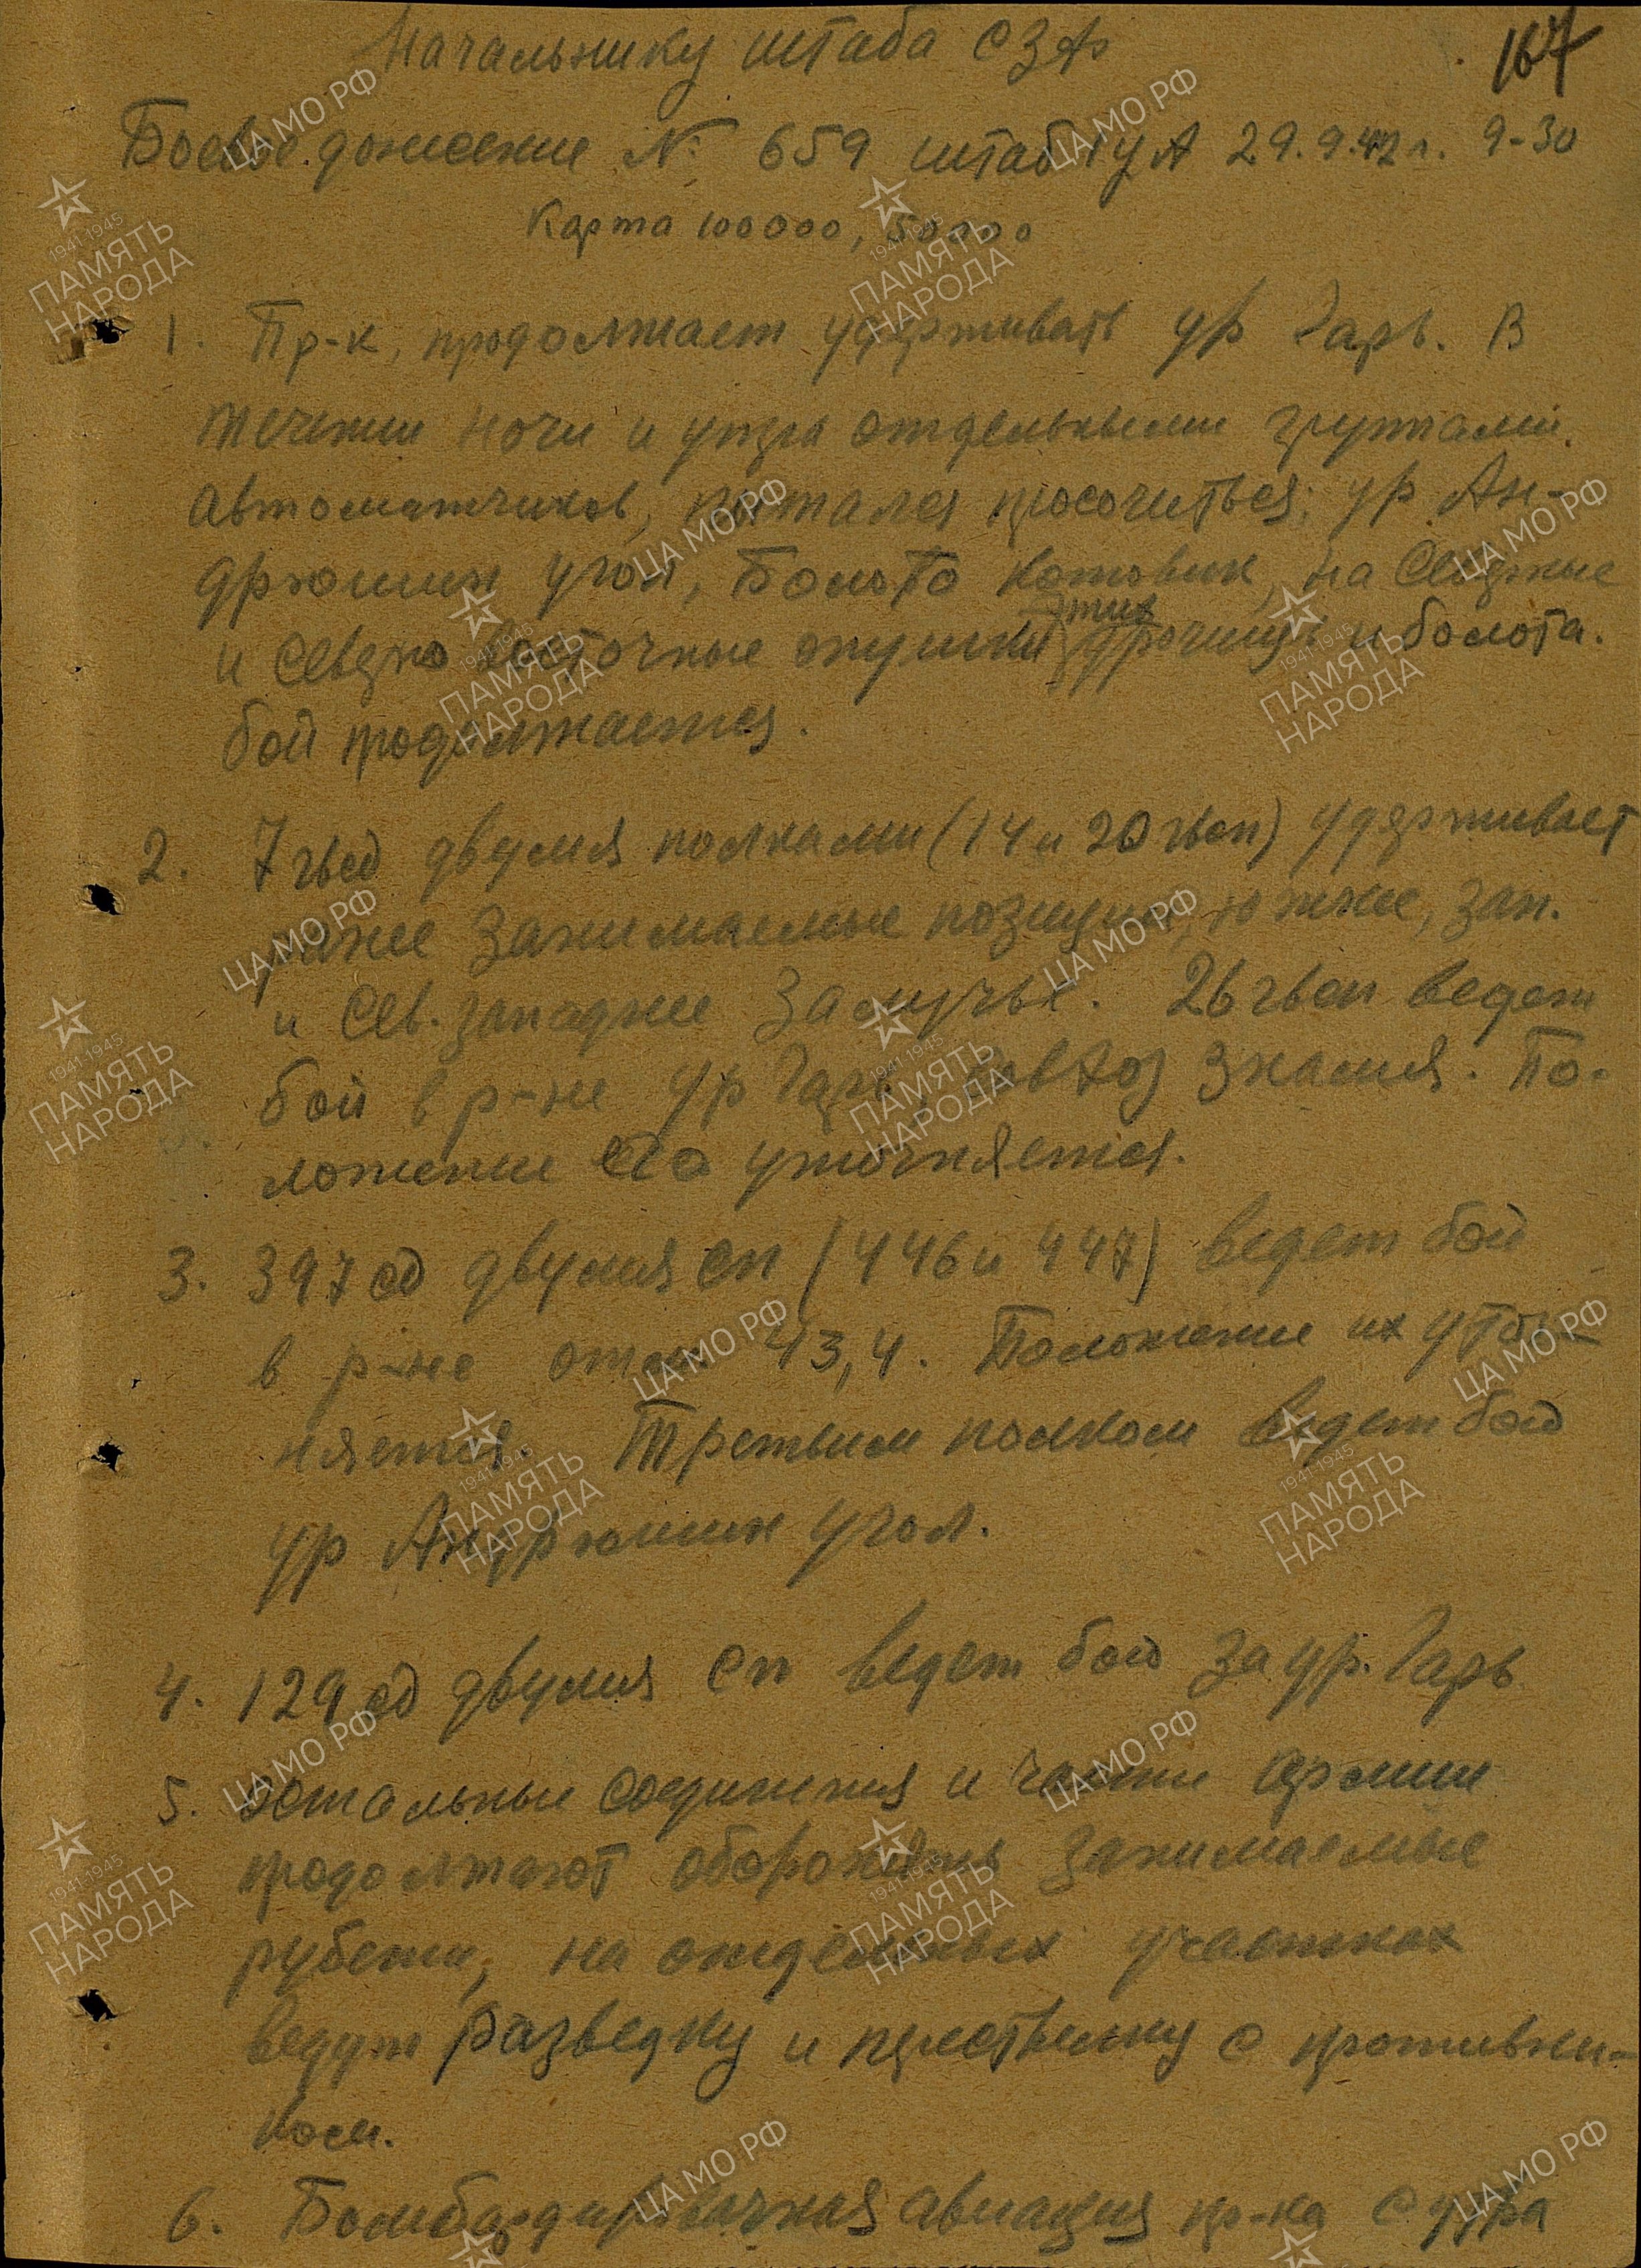 Начальнику штаба СЗФ
167
Боевое донесение № 659 штаб 1 уА 29.9.42 г. 9-30
Карта 100000, 50000
1. Пр-к, продолжает удерживать ур Гарь. В
течении ночи и утра отдельными группами
автоматчиков, пытался просочиться: ур Ан-
дрюшин угол, Болото Котовик, на Северные
этих
и Северо восточные опушки урочищ и болота.
бой продолжается.
2. 7 гвсд двумя полками (14 и 20 гвсп) удерживает
ранее занимаемые позиции, южнее, зап.
и Сев. западнее Залучье. 26 гвсп ведет
бой в р-не ур Гарь, Совхоз Знамя. По-
ложение его уточняется.
3. 397 сд двумя сп (446 и 447) ведет бой
в р-не отм. 43,4. Положение их уточ-
няется. Третьим полком ведет бой
ур Андрюшин угол.
4. 129 сд двумя сп ведет бой за ур. Гарь
5. Остальные соединения и части армии
продолжают оборонять занимаемые
рубежи, на отдельных участках
ведут разведку и перестрелку с противни-
ком.
6. Бомбардировочная авиация пр-ка с утра
ЦА МО РФ
1941 1945
ПАМЯТЬ
НАРОДА